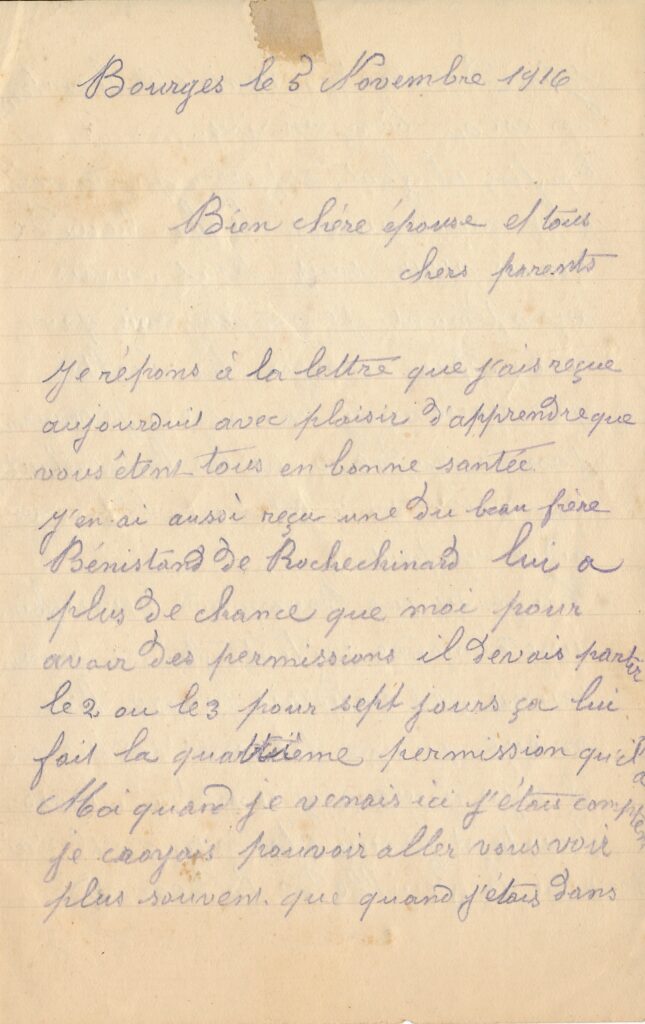 Bourges le 5 Novembre 1916
Bien chère épouse et tous
chers parents
Je répons à la lettre que j'ais reçue
aujourduit avec plaisir d'apprendre que
vous étent tous en bonne santée.
J'en ai aussi reçu une du beau frère
Bénistand de Rochechinard lui a
plus de chance que moi pour
avoir des permissions il devais partir
le 2 ou le 3 pour sept jours ça lui
fait la quatrième permission qu'il a
Moi quand je venais ici j'étais
je croyais pouvoir aller vous voir
plus souvent que quand j'étais dans